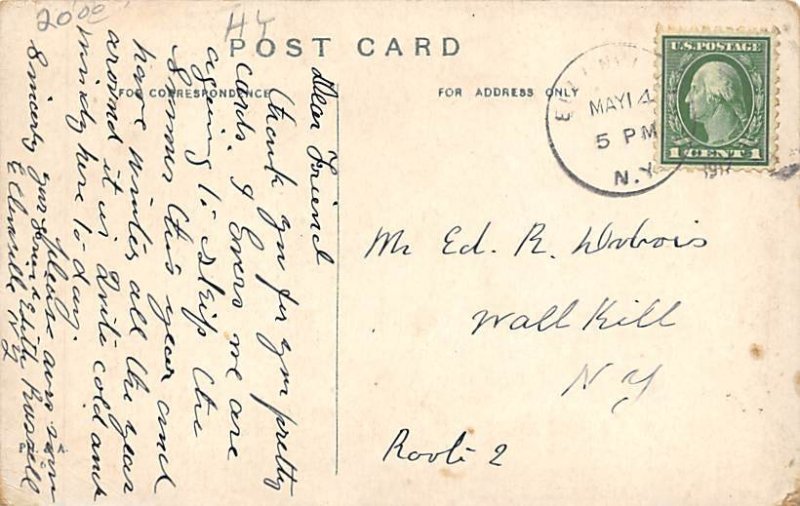 20.00
HY
POST CARD
FOR CORRESPONDENCE
FOR ADDRESS ONLY
U.S. POSTAGE
1 CENT 1
MAY 14
5 PM
N.Y.
1917
Dear Friend
thank you for your pretty
cards. I Guess we are
a going to skip the
Summer this year and
have winter all the year
around it is Quite cold and
windy here to day.
please ans soon
Sincerly your friend Edith Russell
Ellenville N Y
Mr Ed. R. Dubois
Wall Kill
N Y
Route 2